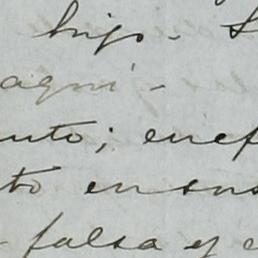 hijo. S
aqui-
nto; en ef
to en sus
falsa y e